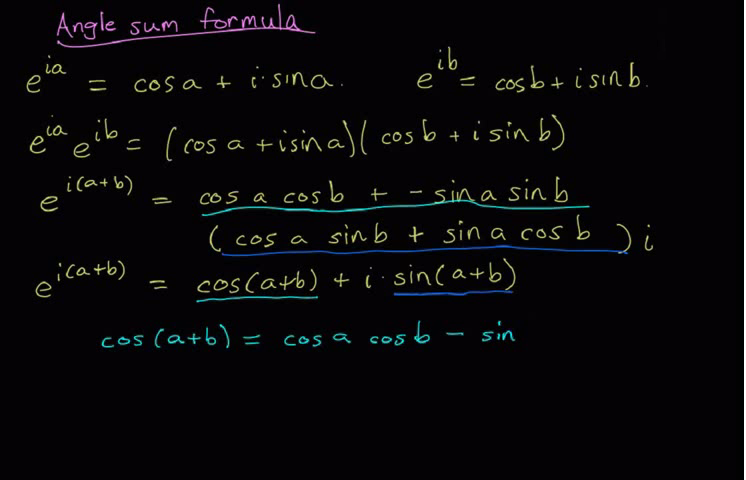 Angle sum formula
e^{ia} = cos a + i·sin a.   e^{ib} = cos b + i sin b.
e^{ia} e^{ib} = (cos a + i sin a)(cos b + i sin b)
e^{i(a+b)} = cos a cos b + - sin a sin b
(cos a sin b + sin a cos b) i
e^{i(a+b)} = cos(a+b) + i· sin(a+b)
cos(a+b) = cos a cos b - sin